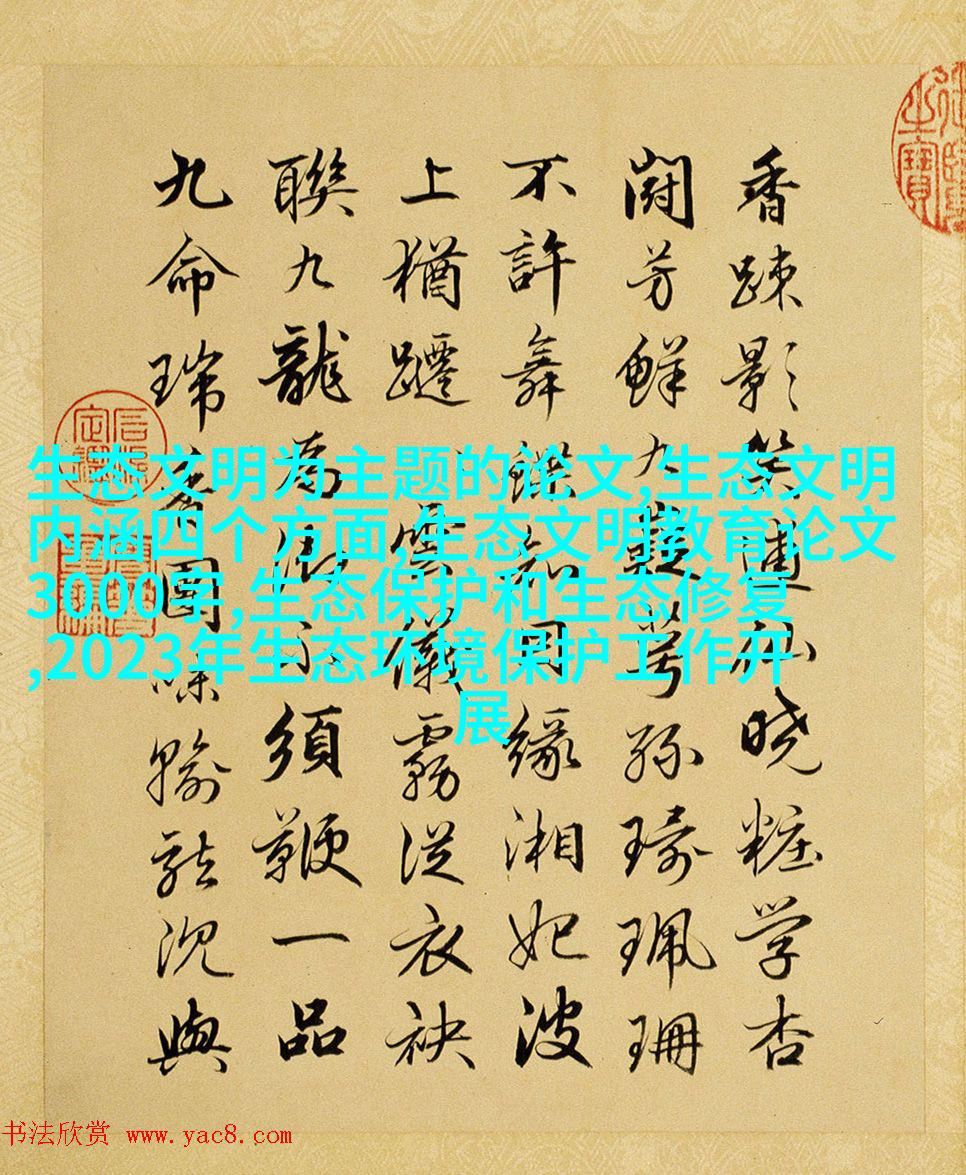 香踈影曉粧学杏
闘芳鮮九珮珊
不許舞蝶知同緣湘妃波
上猶躚雲霧從衣袂
聯九龍為須鞭一品
九命瑞國味輸龍沉與
生态文明为主题的论文,生态文明
内涵四个方面,生态文明教育论文
3000字,生态保护和生态修复
,2023年生态环境保护工作开
展
书法欣赏 www.yac8.com